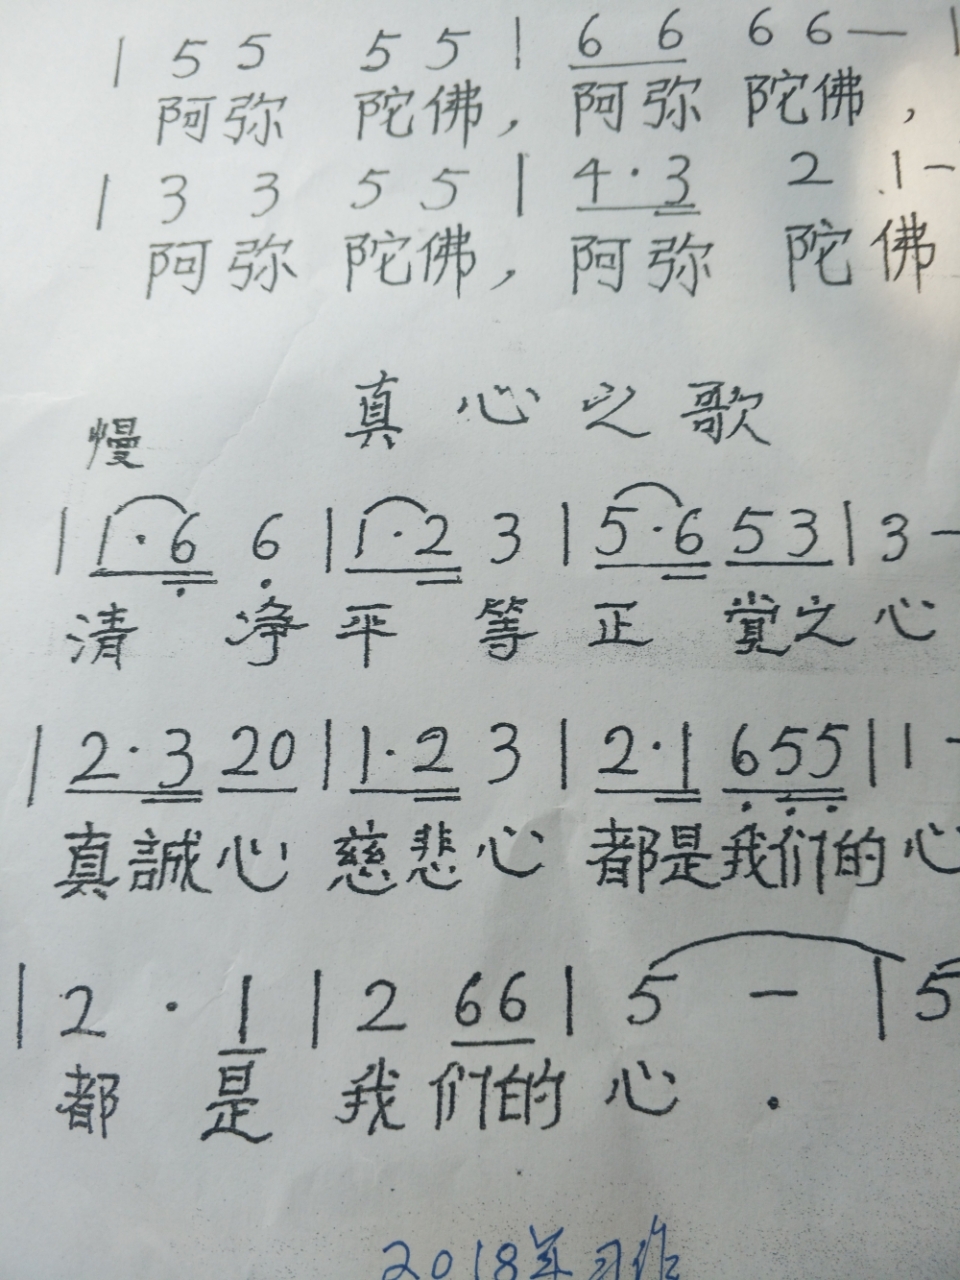 | 5 5 5 5 | 6 6 6 6 — |
阿弥 陀佛，阿弥 陀佛，
| 3 3 5 5 | 4·3 2 1 -
阿弥 陀佛，阿弥 陀佛
真心之歌
慢
| 1·6 6 | 1·2 3 | 5·6 53 | 3 -
清 净 平 等 正 覚之心
| 2·3 20 | 1·2 3 | 2·1 655 | 1 -
真誠心 慈悲心 都是我们的心
| 2 · 1 | 2 66 | 5 - | 5
都 是 我们的心.
2018年习作